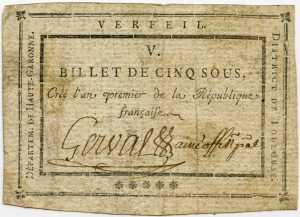 VERFEIL.
V.
BILLET DE CINQ SOUS,
Créé l'an premier de la République
française.
Gerval
DÉPARTEM. DE HAUTE-GARONNE.
DISTRICT DE TOULOUSE.